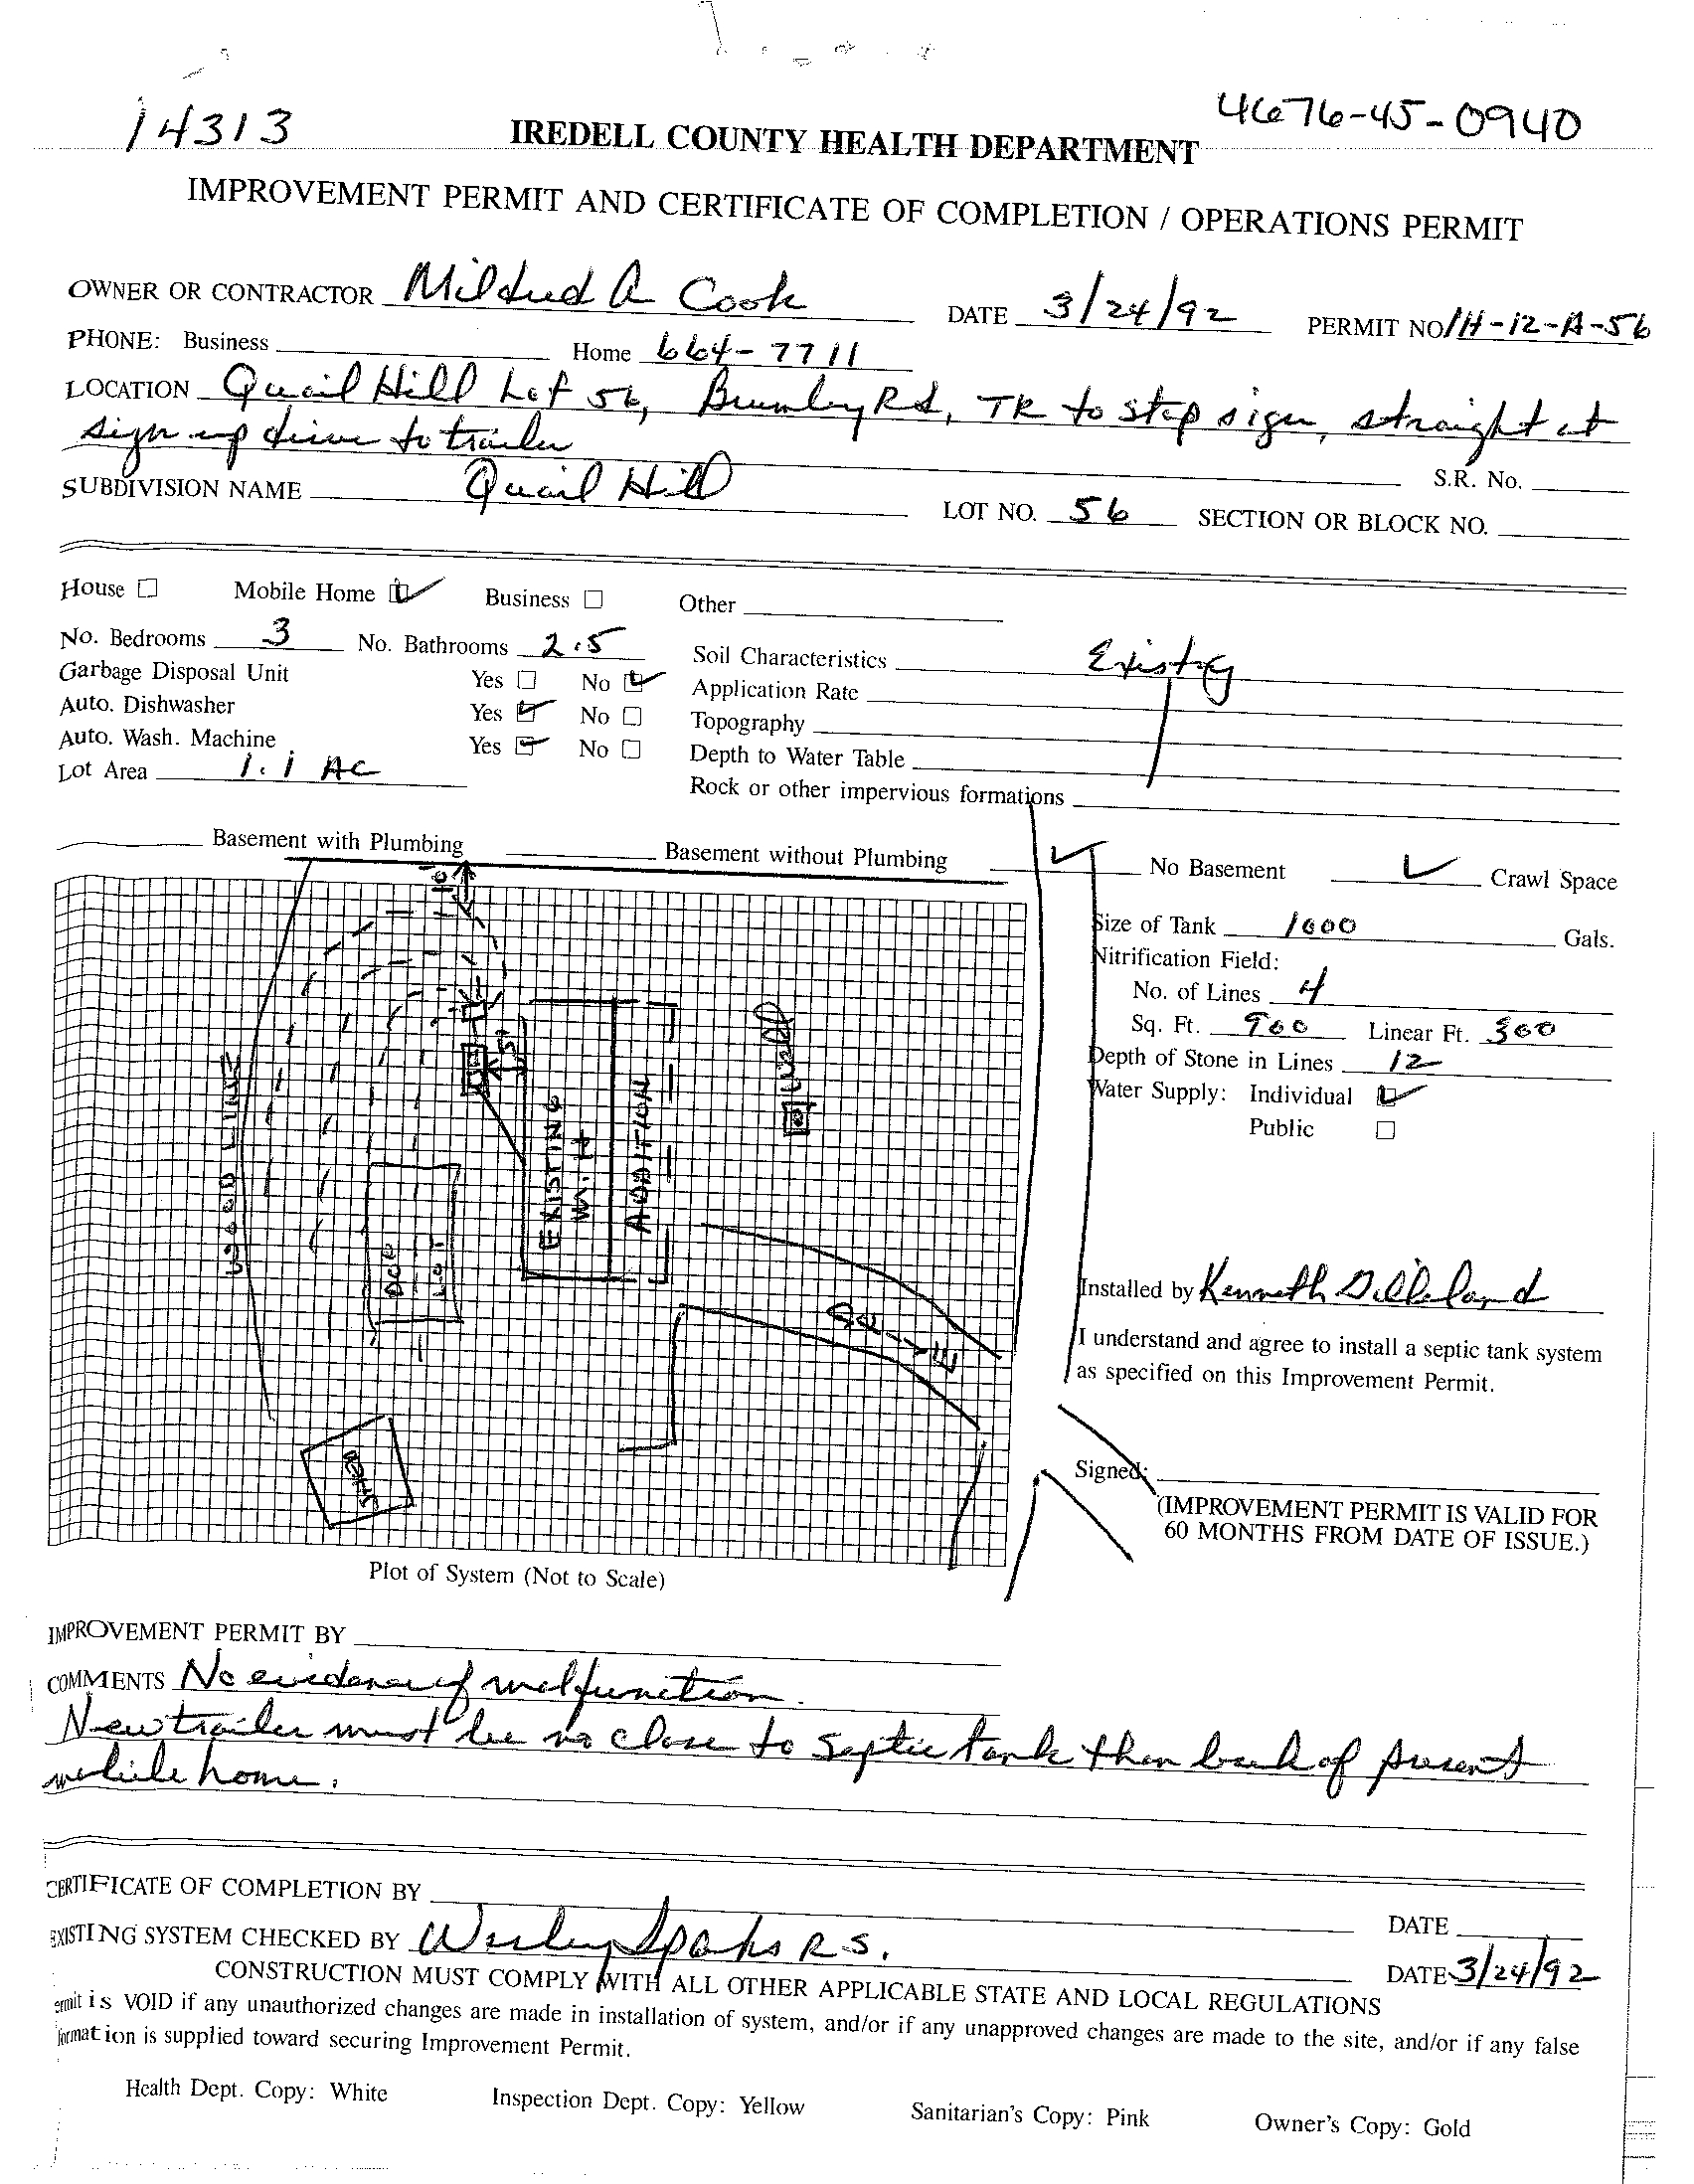 14313
4676-45-0940
IREDELL COUNTY HEALTH DEPARTMENT
IMPROVEMENT PERMIT AND CERTIFICATE OF COMPLETION / OPERATIONS PERMIT
OWNER OR CONTRACTOR Mildred A Cook DATE 3/24/92 PERMIT NO 1H-12-A-56
PHONE: Business Home 664-7711
LOCATION Quail Hill Lot 56, Brumley Rd, TR to stop sign, straight at
sign up drive to trailer
S.R. No.
SUBDIVISION NAME Quail Hill LOT NO. 56 SECTION OR BLOCK NO.
House Mobile Home Business Other
No. Bedrooms 3 No. Bathrooms 2.5 Soil Characteristics Existing
Garbage Disposal Unit Yes No Application Rate
Auto. Dishwasher Yes No Topography
Auto. Wash. Machine Yes No Depth to Water Table
Lot Area 1.1 AC Rock or other impervious formations
Basement with Plumbing Basement without Plumbing No Basement Crawl Space
10'
15'
WOOD LINE
EXISTING
M.H
ADDITION
Well
DOG
LOT
DRIVE
Size of Tank 1000 Gals.
Nitrification Field:
No. of Lines 4
Sq. Ft. 900 Linear Ft. 300
Depth of Stone in Lines 12
Water Supply: Individual
Public
Installed by Kenneth Gilleland
I understand and agree to install a septic tank system
as specified on this Improvement Permit.
Signed:
(IMPROVEMENT PERMIT IS VALID FOR
60 MONTHS FROM DATE OF ISSUE.)
Plot of System (Not to Scale)
IMPROVEMENT PERMIT BY
COMMENTS No evidence of malfunction.
New trailer must be no close to septic tank than back of present
mobile home.
CERTIFICATE OF COMPLETION BY DATE
EXISTING SYSTEM CHECKED BY Wesley Sparks R.S. DATE 3/24/92
CONSTRUCTION MUST COMPLY WITH ALL OTHER APPLICABLE STATE AND LOCAL REGULATIONS
ermit is VOID if any unauthorized changes are made in installation of system, and/or if any unapproved changes are made to the site, and/or if any false
formation is supplied toward securing Improvement Permit.
Health Dept. Copy: White Inspection Dept. Copy: Yellow Sanitarian's Copy: Pink Owner's Copy: Gold